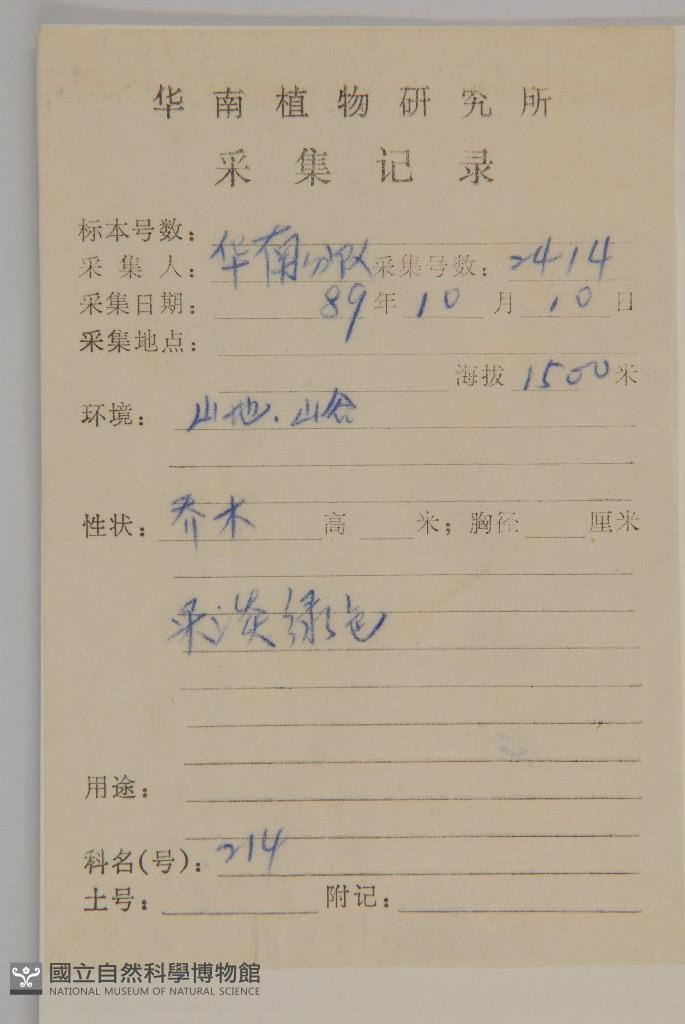 华南植物研究所
采集记录
标本号数:
采集人: 华南分队 采集号数: 2414
采集日期: 89年10月10日
采集地点:
海拔1500米
环境: 山地.山谷
性状: 乔木 高 米; 胸径 厘米
果淡绿色
用途:
科名(号): 214
土号: 附记:
國立自然科學博物館
NATIONAL MUSEUM OF NATURAL SCIENCE